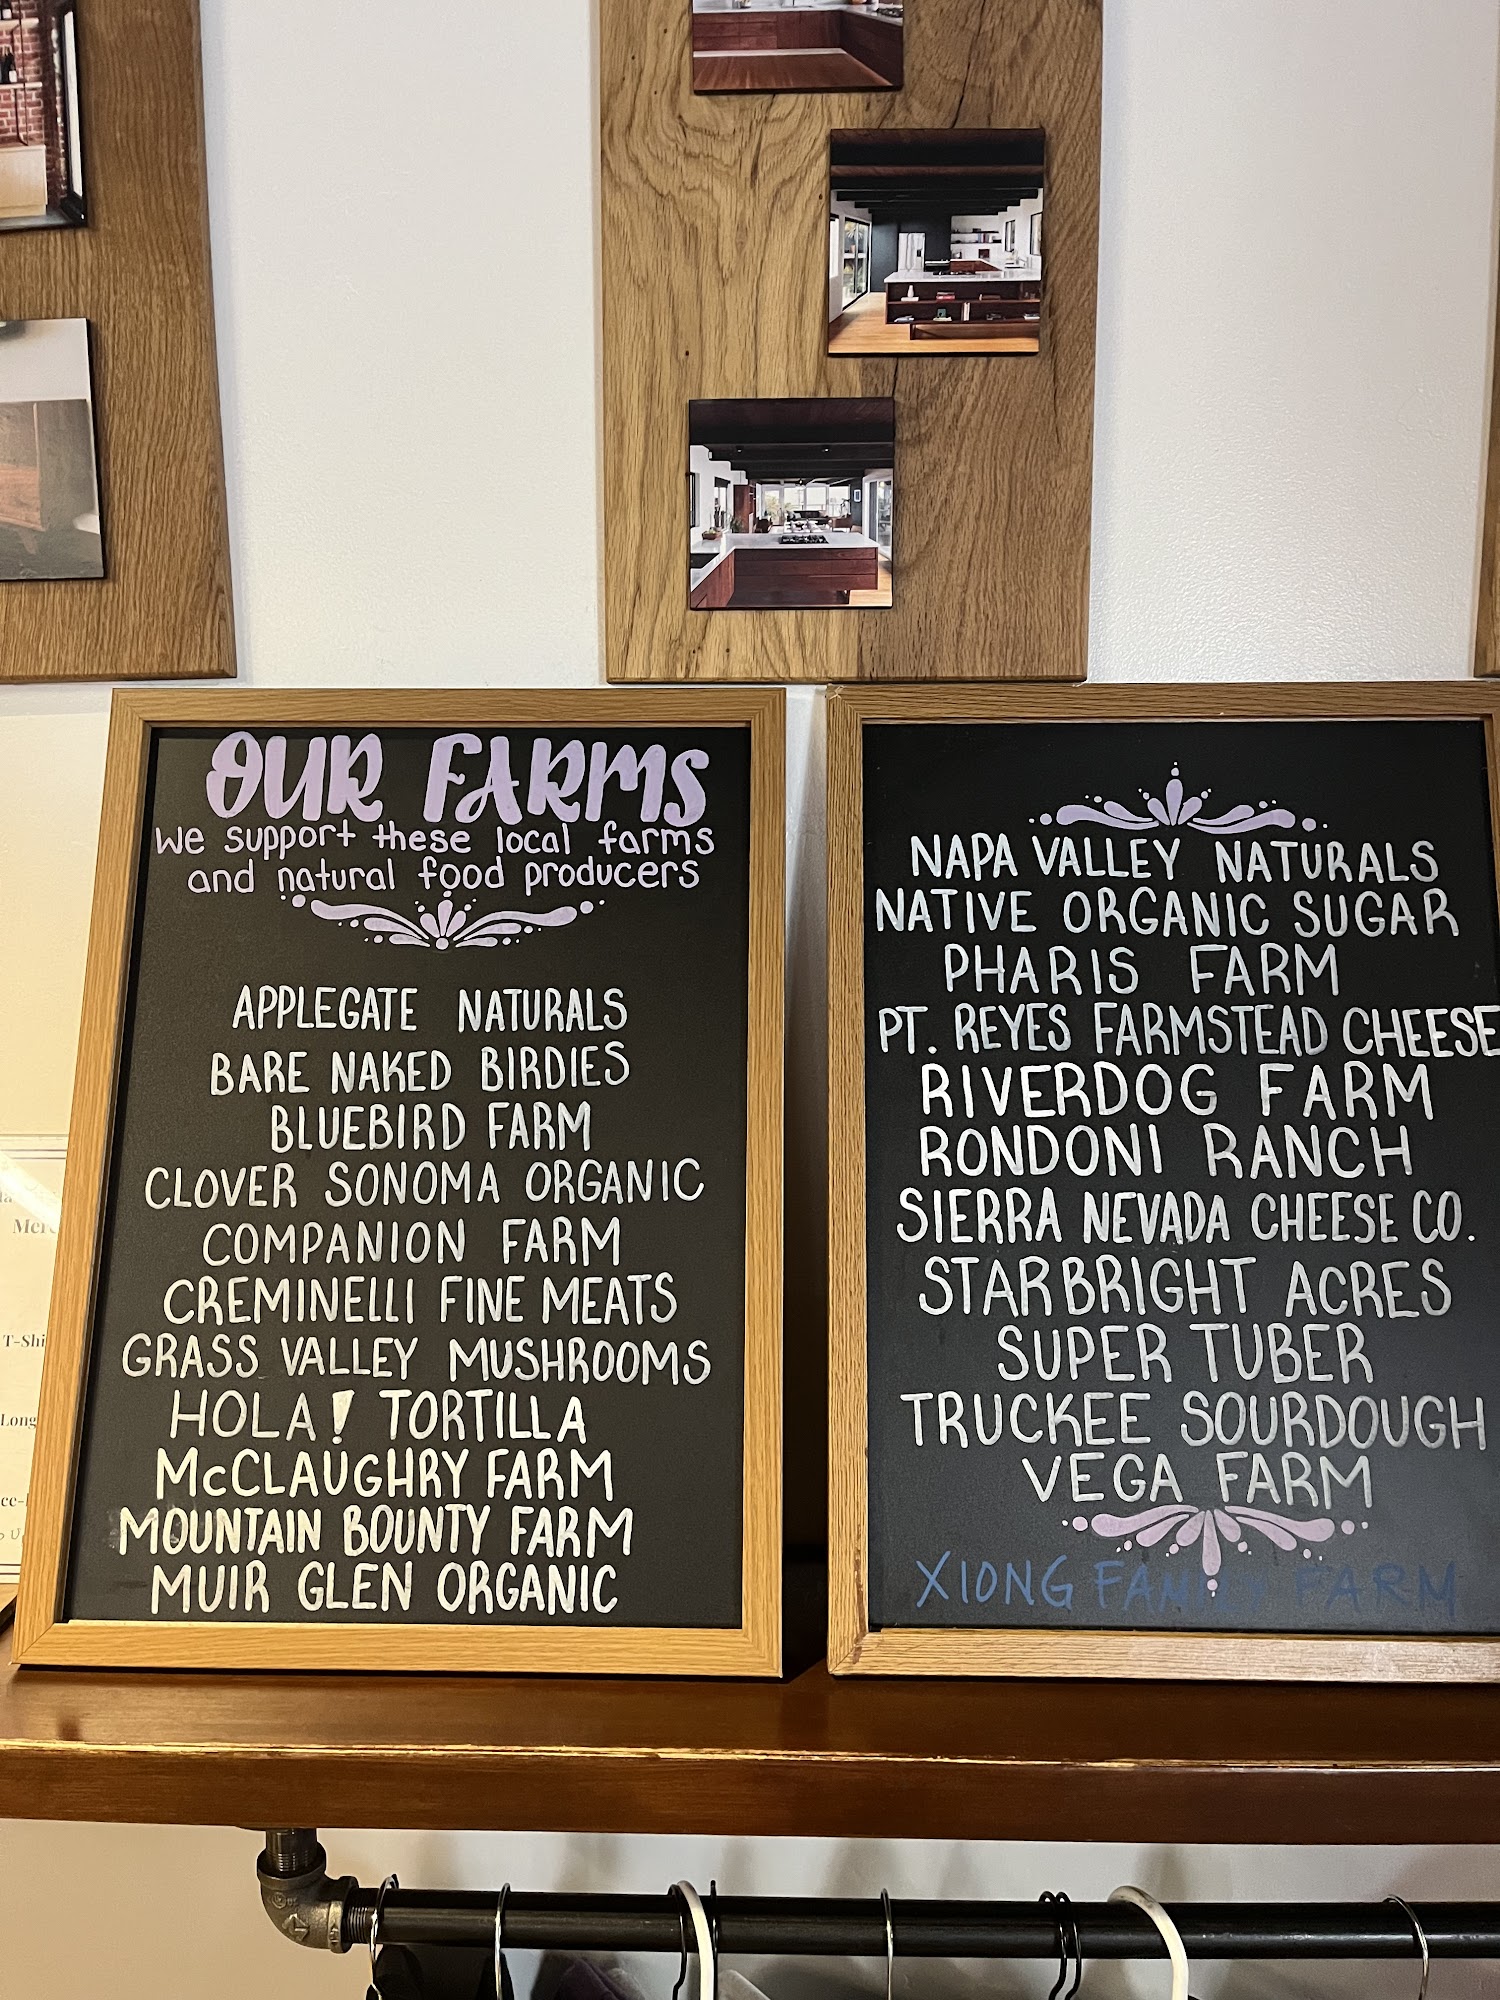 OUR FARMS
We support these local farms
and natural food producers
APPLEGATE NATURALS
BARE NAKED BIRDIES
BLUEBIRD FARM
CLOVER SONOMA ORGANIC
COMPANION FARM
CREMINELLI FINE MEATS
GRASS VALLEY MUSHROOMS
HOLA! TORTILLA
McCLAUGHRY FARM
MOUNTAIN BOUNTY FARM
MUIR GLEN ORGANIC
NAPA VALLEY NATURALS
NATIVE ORGANIC SUGAR
PHARIS FARM
PT. REYES FARMSTEAD CHEESE
RIVERDOG FARM
RONDONI RANCH
SIERRA NEVADA CHEESE CO.
STARBRIGHT ACRES
SUPER TUBER
TRUCKEE SOURDOUGH
VEGA FARM
XIONG FAMILY FARM
T-Shi
Long